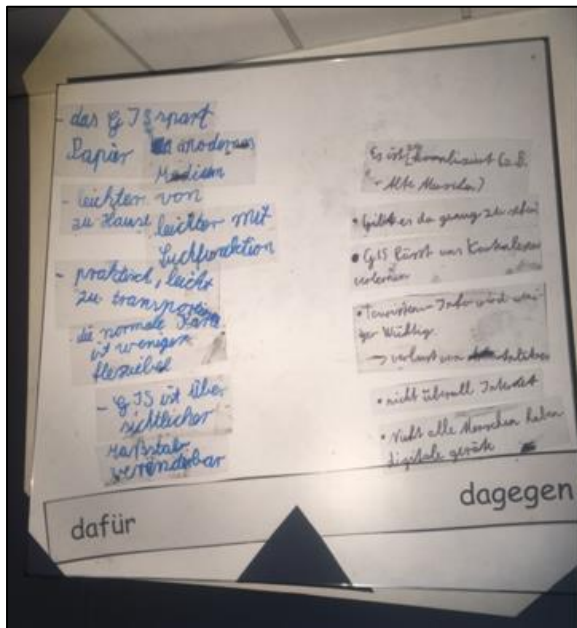 - das GIS spart
Papier
modernes
Medium
- leichter von
zu Hause
leichter mit
Suchfunktion
- praktisch, leicht
zu transportieren
die normale Karte
ist weniger
flexiebel
- GIS ist über
sichtlicher
Maßstab
verenderbar
Es ist (z.B.
- Alte Menschen)
• Gibt es da genug zu sehen
• GIS lässt uns Kartenlesen
verlernen
• Touristen-Info wird weni
ger Wichtig.
→ verlust von
• nicht überall Internet
• Nicht alle Menschen haben
digitale geräte
dafür
dagegen